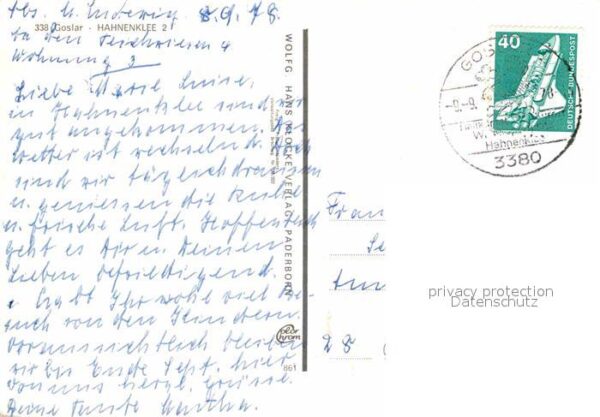 Abs. U. Ludewig 8.9.78.
338 Goslar · HAHNENKLEE 2
In den Teichwiesen 4
Wohnung 3
Liebe Luise,
in Hahnenklee sind wir
gut angekommen. Das
Wetter ist wechselnd. Doch
sind wir täglich draussen
u. geniessen die Ruhe
u. frische Luft. Hoffentlich
geht es Dir u. Deinen
Lieben befriedigend.
Ihr wohl viel Be-
such von den Kindern.
Voraussichtlich bleiben
wir bis Ende Sept. hier
uns herzl. Grüsse
Deine Tante Martha.
WOLFG. HANS KLOCKE VERLAG PADERBORN
color
chrom
861
40
DEUTSCHE BUNDESPOST
GOS
-9.-9.
W.
Hahnenklee
3380
Frau
28
privacy protection
Datenschutz